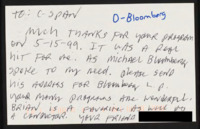 TO: C-SPAN
D-Bloomberg
MUCH THANKS FOR YOUR PROGRAM
ON 5-15-99. IT WAS A REAL
HIT FOR ME. AS MICHAEL BLOOMBERG
SPOKE TO MY NEED. PLEASE SEND
HIS ADDRESS FOR BLOOMBERG L.P.
YOUR MANY PROGRAMS ARE WONDERFUL.
BRIAN IS A FAVORITE AS WELL AS
A CONVEYOR. YOUR FRIEND